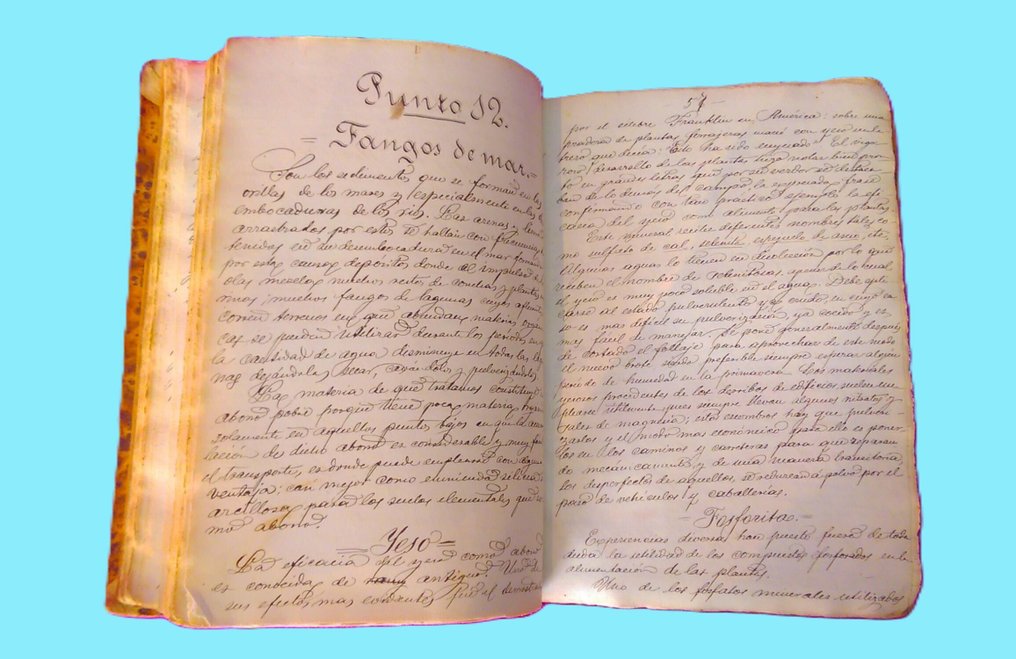 Punto 12.
= Fangos de mar. =
Son los sedimentos que se forman en las
orillas de los mares y especialmente en las
embocaduras de los rios. Las arenas y limos
arrastrados por estos se hallan con frecuencia
tenidas en su desembocadura en el mar formando
por esta causa depósitos donde el impulso de
olas mezcla muchos restos de conchas y plantas
rinas; muchos fangos de lagunas cuyos afluentes
corren terrenos en que abundan materias orgáni
cas se pueden utilizar durante los periodos en
la cantidad de agua disminuye en todas las
nas dejándolas secar,
La materia de que tratamos constituye
abono pobre porque tiene poca materia orgá
solamente en aquellos puntos bajos en que la acumu
lación de dicho abono es considerable y muy facil
el transporte, es donde puede emplearse con alguna
ventaja: can mejor como enmienda silicea o
arcillosa para los suelos elementales que co
mo abono.
= Yeso =
La eficacia del yeso como abono
es conocida de antiguo. Uno de
sus efectos mas constantes fué el demostrado
57
por el célebre Franklin en América: sobre una
pradera de plantas forrajeras trazó con yeso un le
trero que decia: "Esto ha sido enyesado" El vigo
roso desarrollo de las plantas hizo notar bien pron
to en grandes letras que por su verdor se destaca
ban de lo demas del campo, la expresada frase
confirmando con tan práctico ejemplo la efi
cacia del yeso como alimento para las plantas.
Este mineral recibe diferentes nombres tales co
mo sulfato de cal, selenita, espejuelo de asno, etc.
Algunas aguas lo tienen en disolucion por lo que
reciben el nombre de selenitosas, apesar de lo cual
el yeso es muy poco soluble en el agua. Debe apli
carse al estado pulverulento y ya crudo en cuyo ca
so es mas dificil su pulverización, ya cocido y es
mas facil de manejar. Se pone generalmente despues
de cortado el forraje para aprovechar de este modo
el nuevo brote siendo preferible siempre esperar algun
periodo de humedad en la primavera. Los materiales
yesosos procedentes de los derribos de edificios suelen em
plearse utilmente pues siempre llevan algunos nitratos y
sales de magnesia; estos escombros hay que pulveri
zarlos y el modo mas económico para ello es poner
los en los caminos y carreteras para que reparan
do mecanicamente y de una manera transitoria
los desperfectos de aquellos, se reduzcan á polvo por el
paso de vehículos y caballerías.
= Fosforita. =
Experiencias diversas han puesto fuera de toda
duda la utilidad de los compuestos fosforados en la
alimentación de las plantas.
Uno de los fosfatos minerales utilizados